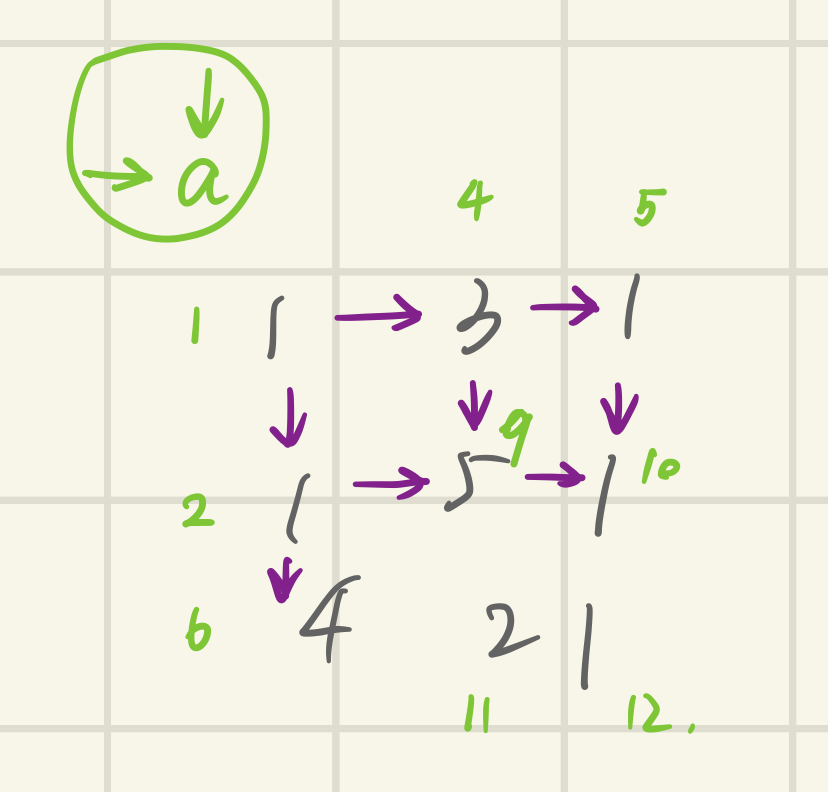 ↓
→ a
4 5
1 1 → 3 → 1
↓ ↓ ↓
9
2 1 → 5 → 1 10
↓
6 4 2 1
11 12.